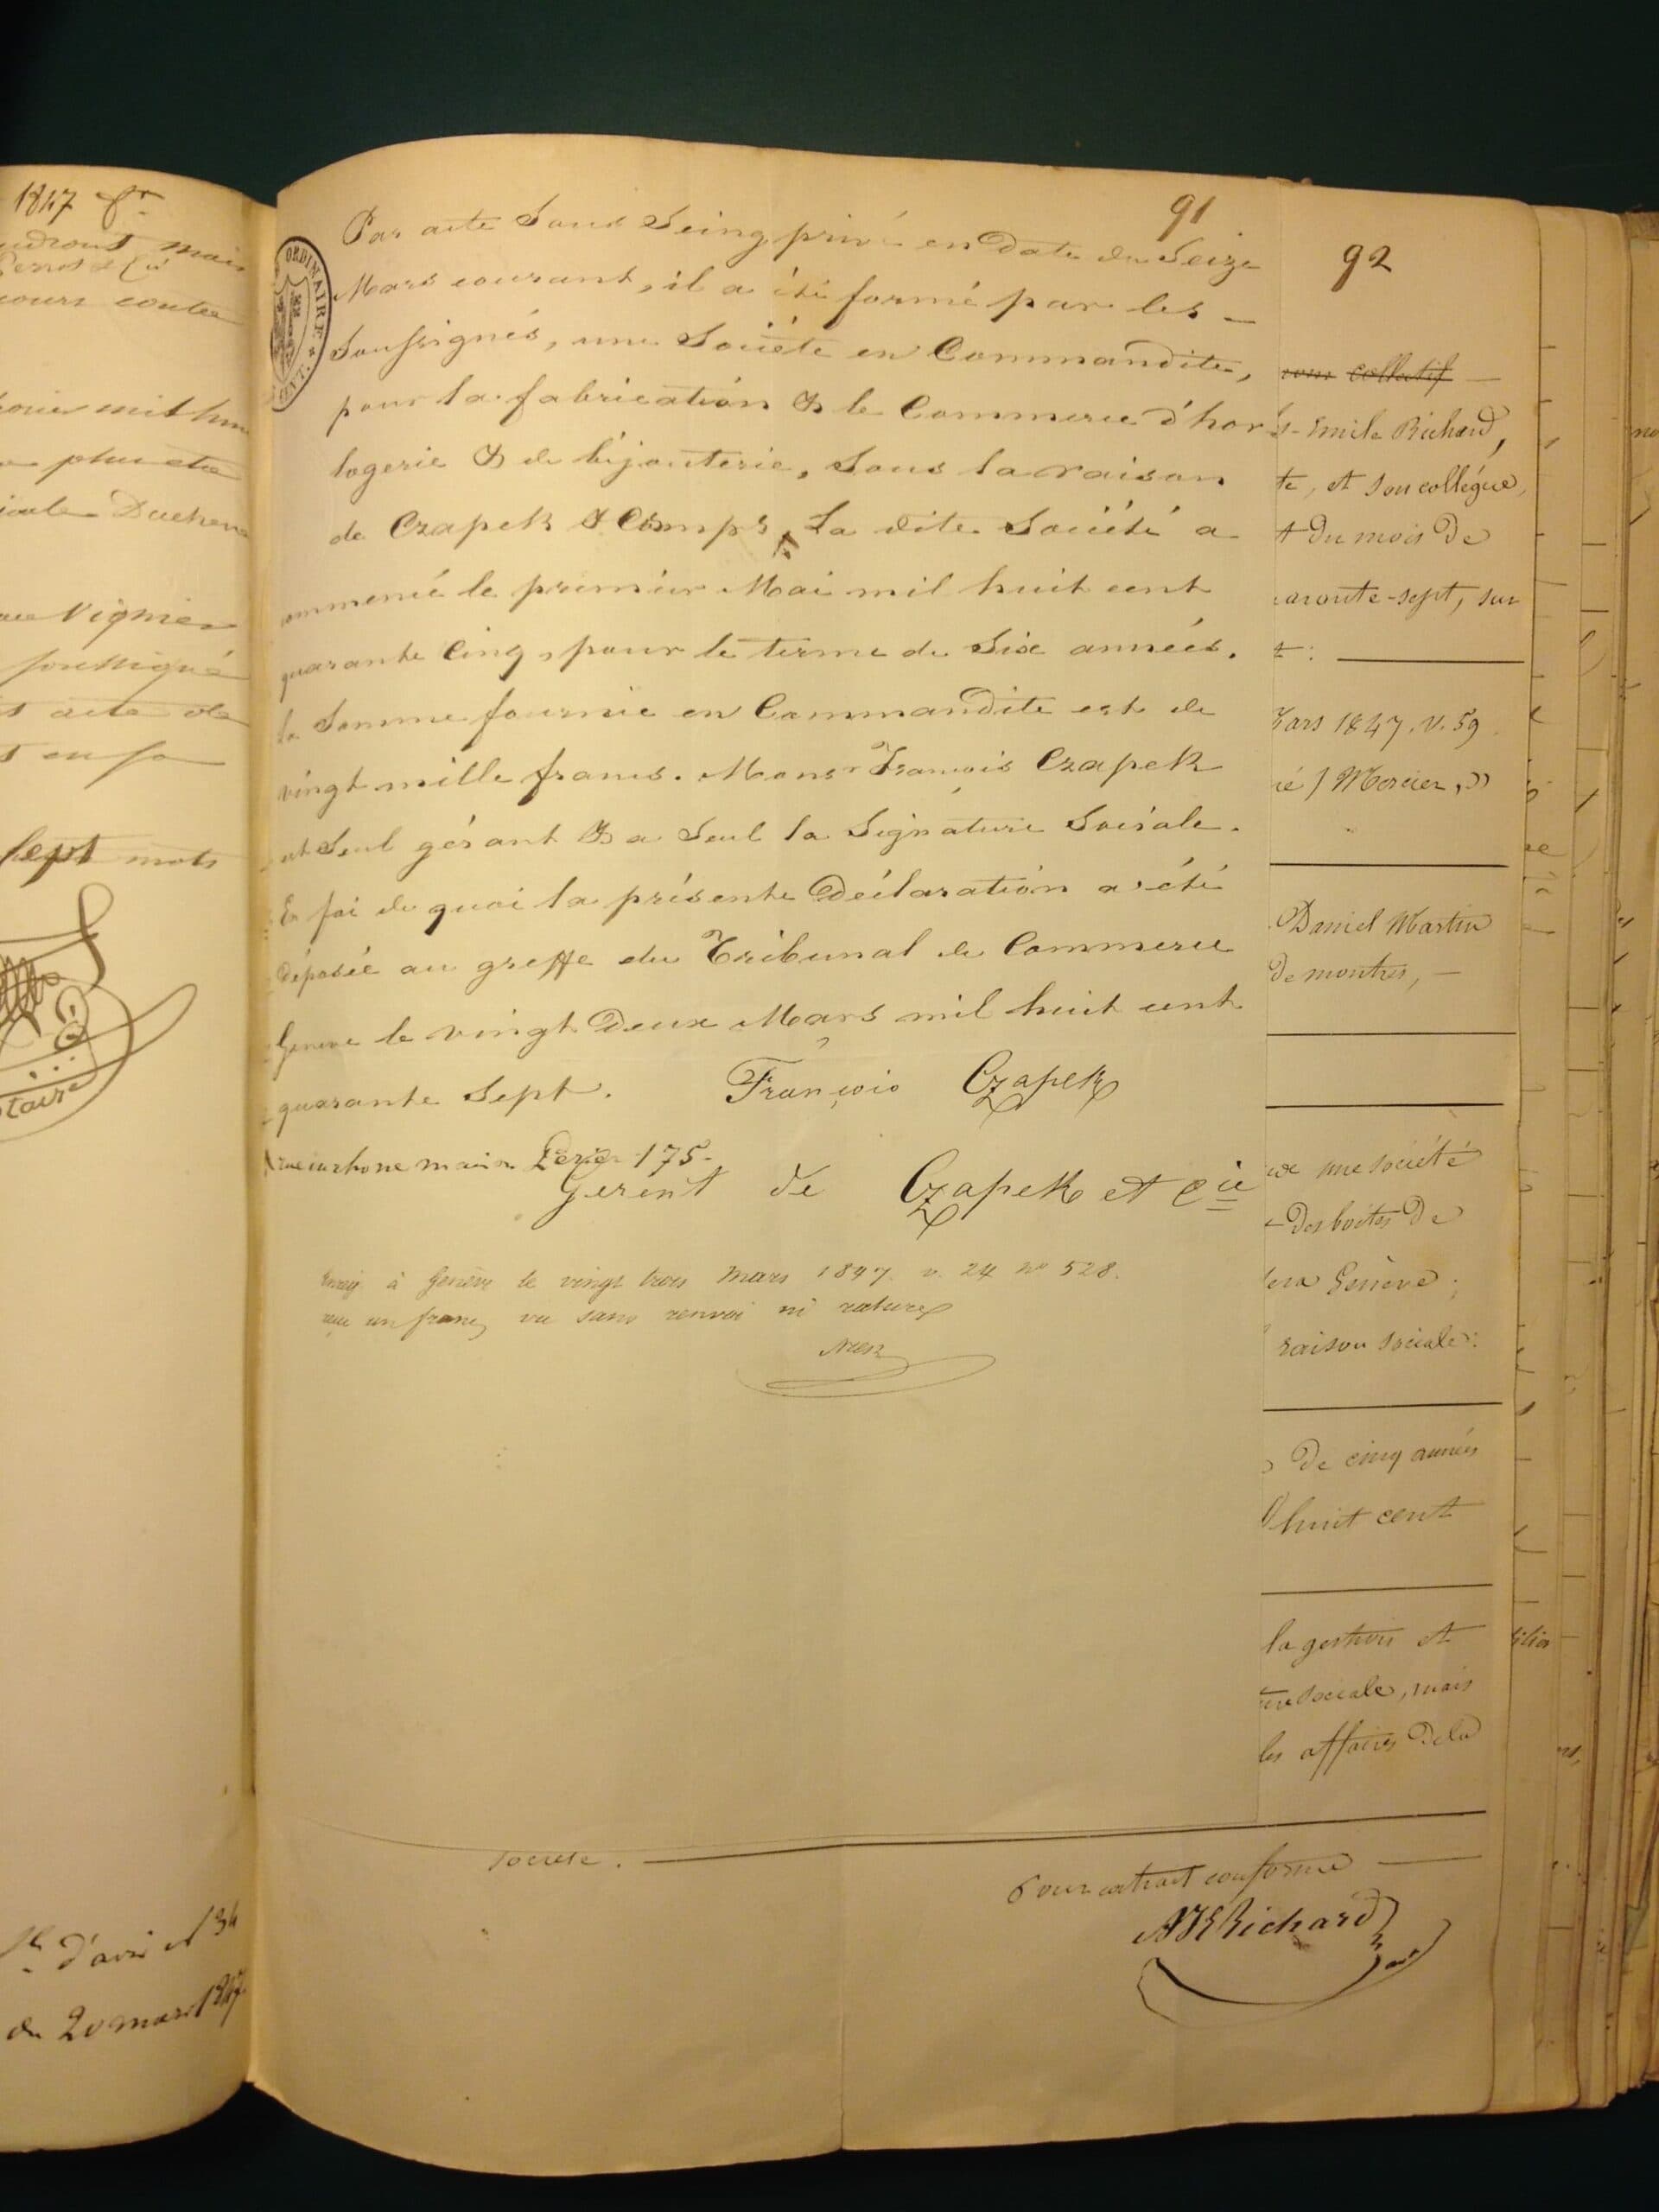 1847
mais
cours contre
plus etre
Vignier
soussigné
acte de
sept mots
d'avis
du 20 mars 1847
ORDINAIRE
91
Par acte Sous Seing privé en Date du Seize
Mars courant, il a été formé par les –
Soussignés, une Société en Commandite,
pour la fabrication & le Commerce d'hor
logerie & de bijouterie, Sous la raison
de Czapek & Comp^e. La dite Société a
commencé le premier Mai mil huit cent
quarante Cinq, pour le terme de Six années.
la Somme fournie en Commandite est de
vingt mille francs. Mons^r François Czapek
est Seul gérant & a Seul la Signature Sociale.
En foi de quoi la présente Déclaration a été
déposée au greffe du Tribunal de Commerce
Geneve le vingt Deux Mars mil huit cent
quarante Sept. François Czapek
175.
Gerent de Czapek et C^ie
Enreg. à Genève le vingt trois Mars 1847. v. 24 n° 528.
reçu un franc, vu sans renvoi ni rature
92
collectif –
Emile Richard,
te, et son collégue,
t Du mois De
arante-sept, sur
Mars 1847. v. 59
né / Mercier, »
Daniel Martin
De montres, –
une société
Des boites De
Genève ;
raison sociale :
De cinq années
huit cent
la gestion et
sociale, mais
les affaires De la
société. –
Pour extrait conforme –
Richard